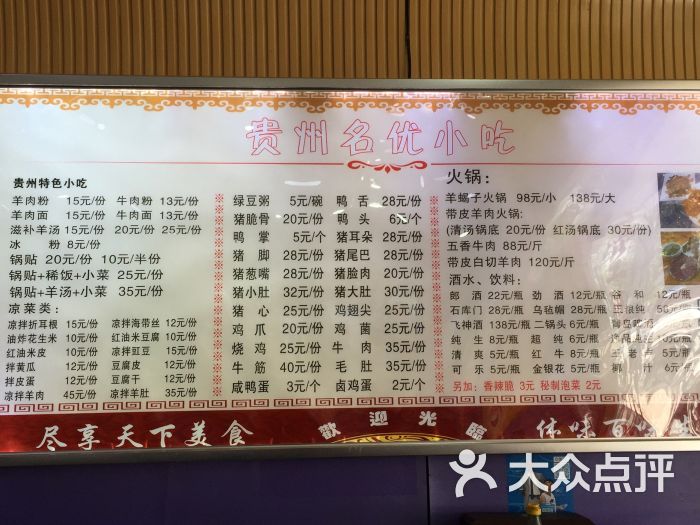 贵州名优小吃
贵州特色小吃
羊肉粉 15元/份 牛肉粉 13元/份
羊肉面 15元/份 牛肉面 13元/份
滋补羊汤 15元/份 20元/份 25元/份
冰 粉 8元/份
锅贴 20元/份 10元/半份
锅贴+稀饭+小菜 25元/份
锅贴+羊汤+小菜 35元/份
凉菜类:
凉拌折耳根 15元/份 凉拌海带丝 12元/份
油炸花生米 10元/份 红油米豆腐 10元/份
红油米皮 10元/份 凉拌豇豆 15元/份
拌黄瓜 12元/份 豆腐皮 12元/份
拌皮蛋 12元/份 豆腐干 12元/份
凉拌羊肉 45元/份 凉拌羊肚 35元/份
绿豆粥 5元/碗 鸭 舌 28元/份
猪脆骨 20元/份 鸭 头 6元/个
鸭 掌 5元/个 猪耳朵 28元/份
猪 脚 28元/份 猪尾巴 28元/份
猪葱嘴 28元/份 猪脸肉 20元/份
猪小肚 32元/份 猪大肚 30元/份
猪 心 25元/份 鸡翅尖 25元/份
鸡 爪 20元/份 鸡 菌 25元/份
烧 鸡 25元/份 牛 肉 35元/份
牛 筋 40元/份 毛 肚 35元/份
咸鸭蛋 3元/个 卤鸡蛋 2元/个
火锅:
羊蝎子火锅 98元/小 138元/大
带皮羊肉火锅:
(清汤锅底 20元/份 红汤锅底 30元/份)
五香牛肉 88元/斤
带皮白切羊肉 120元/斤
酒水、饮料:
郎 酒 22元/瓶 劲 酒 12元/瓶 谷 和 12元/瓶
石库门 28元/瓶 乌毡帽 28元/瓶
飞神酒 138元/瓶 二锅头 6元/瓶
纯 生 8元/瓶 超 纯 6元/瓶
清 爽 5元/瓶 红 牛 8元/瓶
可 乐 5元/瓶 金银花 5元/瓶
另加:香辣脆 3元 秘制泡菜 2元
尽享天下美食 歡迎光臨 体味百味
大众点评